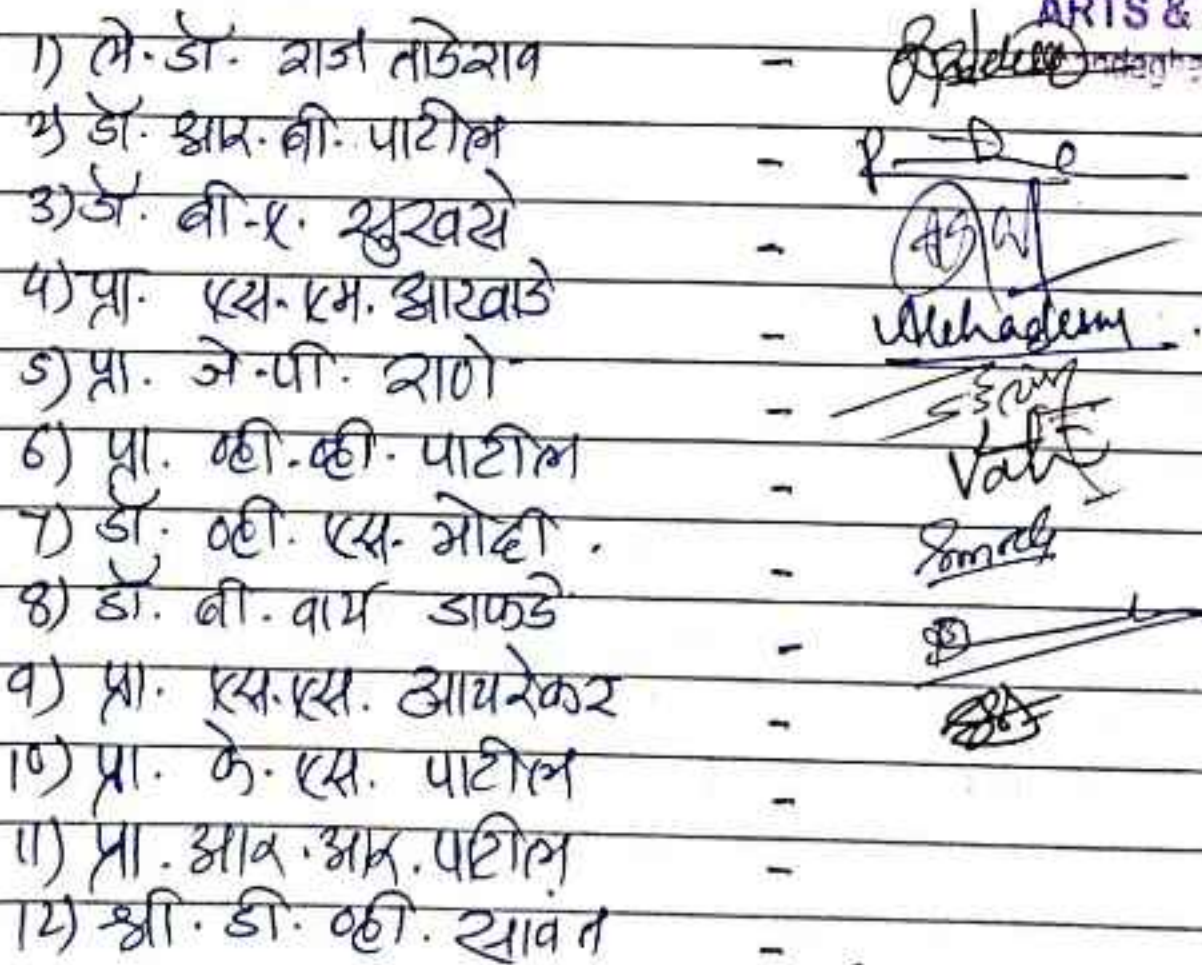 ARTS &
1) ले. डॉ. राज ताडेराव -
२) डॉ. आर. बी. पाटील -
3) डॉ. बी. ए. सुखसे -
4) प्रा. एस. एम. आखाडे -
5) प्रा. जे. पी. राणे -
6) प्रा. व्ही. व्ही. पाटील -
7) डॉ. व्ही. एस. मोदी. -
8) डॉ. बी. वाय डाफडे -
9) प्रा. एस. एस. आयरेकर -
10) प्रा. के. एस. पाटील -
11) प्रा. आर. आर. पाटील -
12) श्री. डी. व्ही. सावंत -